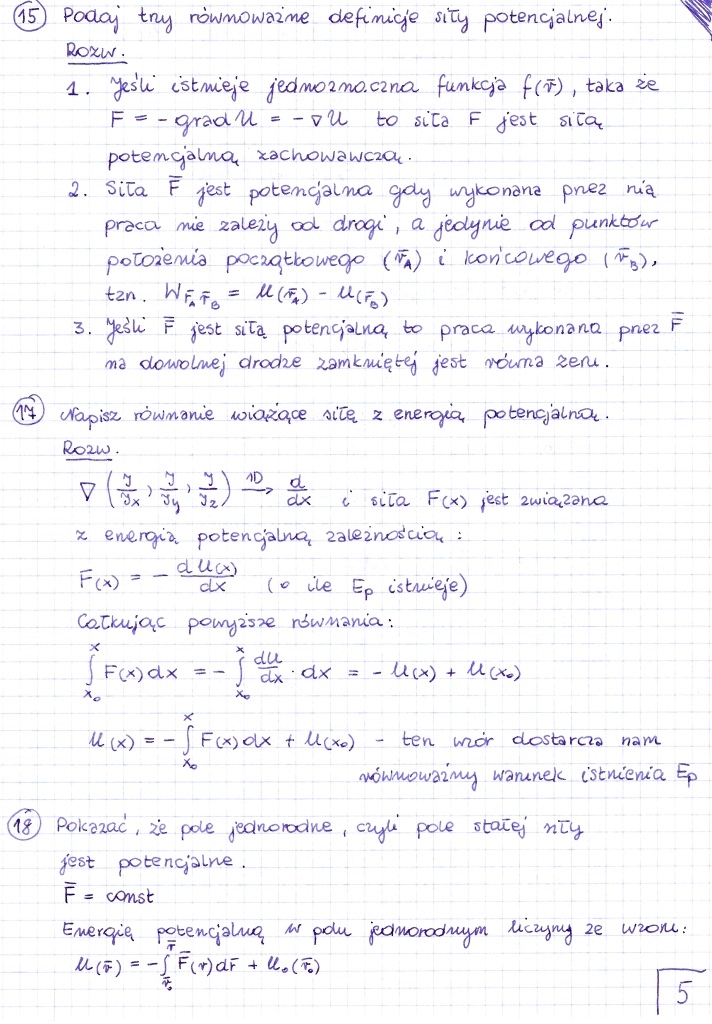 15 Podaj trzy równoważne definicje siły potencjalnej.
Rozw.
1. Jeśli istnieje jednoznaczna funkcja f(r̄), taka że
F = - grad U = - ∇U to siła F jest siłą
potencjalną zachowawczą.
2. Siła F̄ jest potencjalna gdy wykonana przez nią
praca nie zależy od drogi, a jedynie od punktów
położenia początkowego (r̄_A) i końcowego (r̄_B),
tzn. W r̄_A r̄_B = U(r̄_A) - U(r̄_B)
3. Jeśli F̄ jest siłą potencjalną to praca wykonana przez F̄
na dowolnej drodze zamkniętej jest równa zeru.
17 Napisz równanie wiążące siłę z energią potencjalną.
Rozw.
∇ (∂/∂x, ∂/∂y, ∂/∂z) 1D→ d/dx i siła F(x) jest związana
z energią potencjalną zależnością:
F(x) = - dU(x)/dx (o ile Ep istnieje)
Całkując powyższe równania:
∫_{x₀}^{x} F(x)dx = - ∫_{x₀}^{x} dU/dx · dx = - U(x) + U(x₀)
U(x) = - ∫_{x₀}^{x} F(x)dx + U(x₀) - ten wzór dostarcza nam
równoważny warunek istnienia Ep
18 Pokazać, że pole jednorodne, czyli pole stałej siły
jest potencjalne.
F̄ = const
Energię potencjalną w polu jednorodnym liczymy ze wzoru:
U(r̄) = - ∫_{r̄₀}^{r̄} F̄(r)dr̄ + U₀(r̄₀)
5